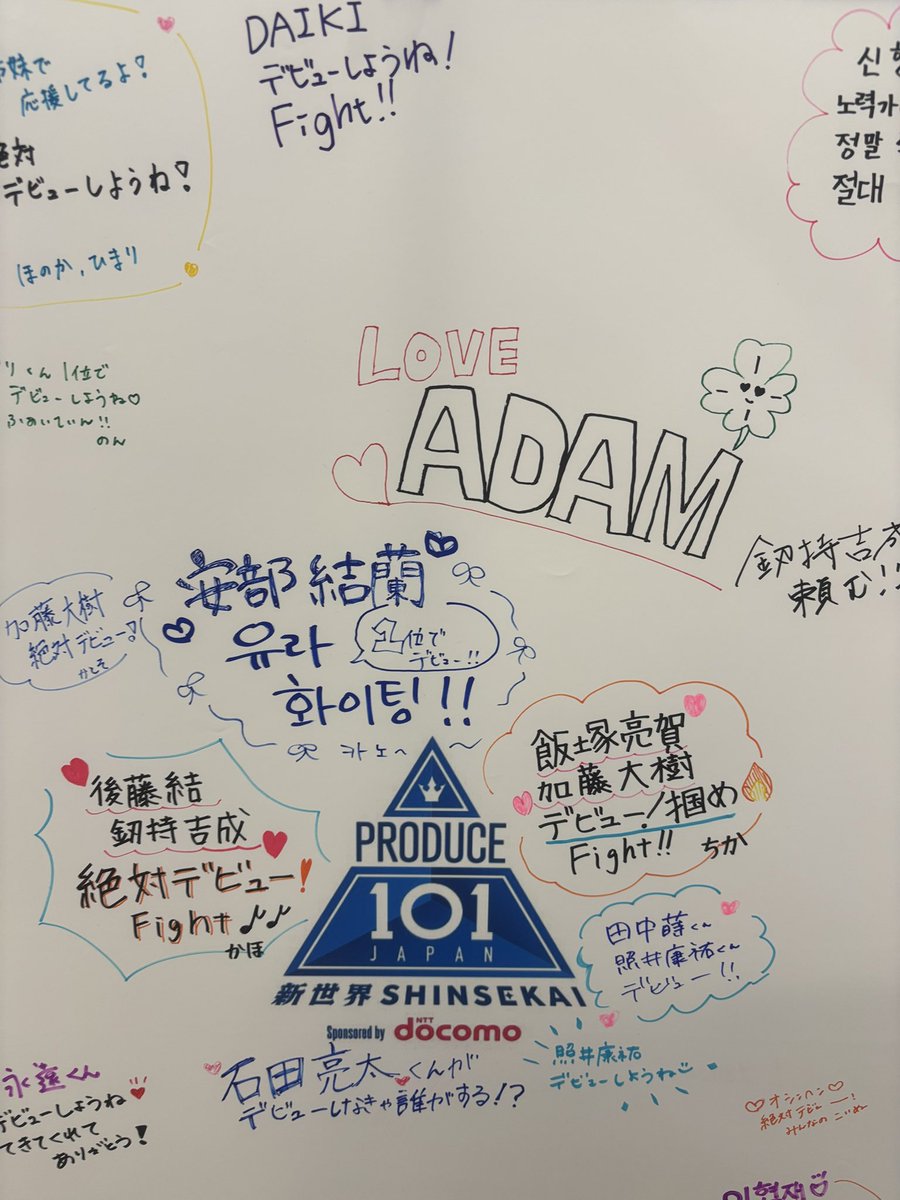 DAIKI
デビューしようね!
Fight!!
妹で
応援してるよ!
絶対
デビューしようね!
ほのか,ひまり
신형
노력가
정말
절대
くん1位で
デビューしようね♡
ふぁいてぃん!!
のん
LOVE
ADAM
釼持吉成
頼む!!
加藤大樹
絶対デビュー!
かしそ
安部結蘭
유라
1位で
デビュー!!
화이팅!!
카노~
飯塚亮賀
加藤大樹
デビュー!掴め
Fight!!
ちか
後藤結
釼持吉成
絶対デビュー!
Fight♪♪
かほ
PRODUCE
101
JAPAN
新世界 SHINSEKAI
Sponsored by NTT docomo
田中蒔くん
照井康祐くん
デビュー!!
照井康祐
デビューしようね
石田亮太くんが
デビューしなきゃ誰がする!?
永遠くん
デビューしようね
てきてくれて
ありがとう!
♡オシンヘン♡
絶対デビュー!
みんなの
이현재♡